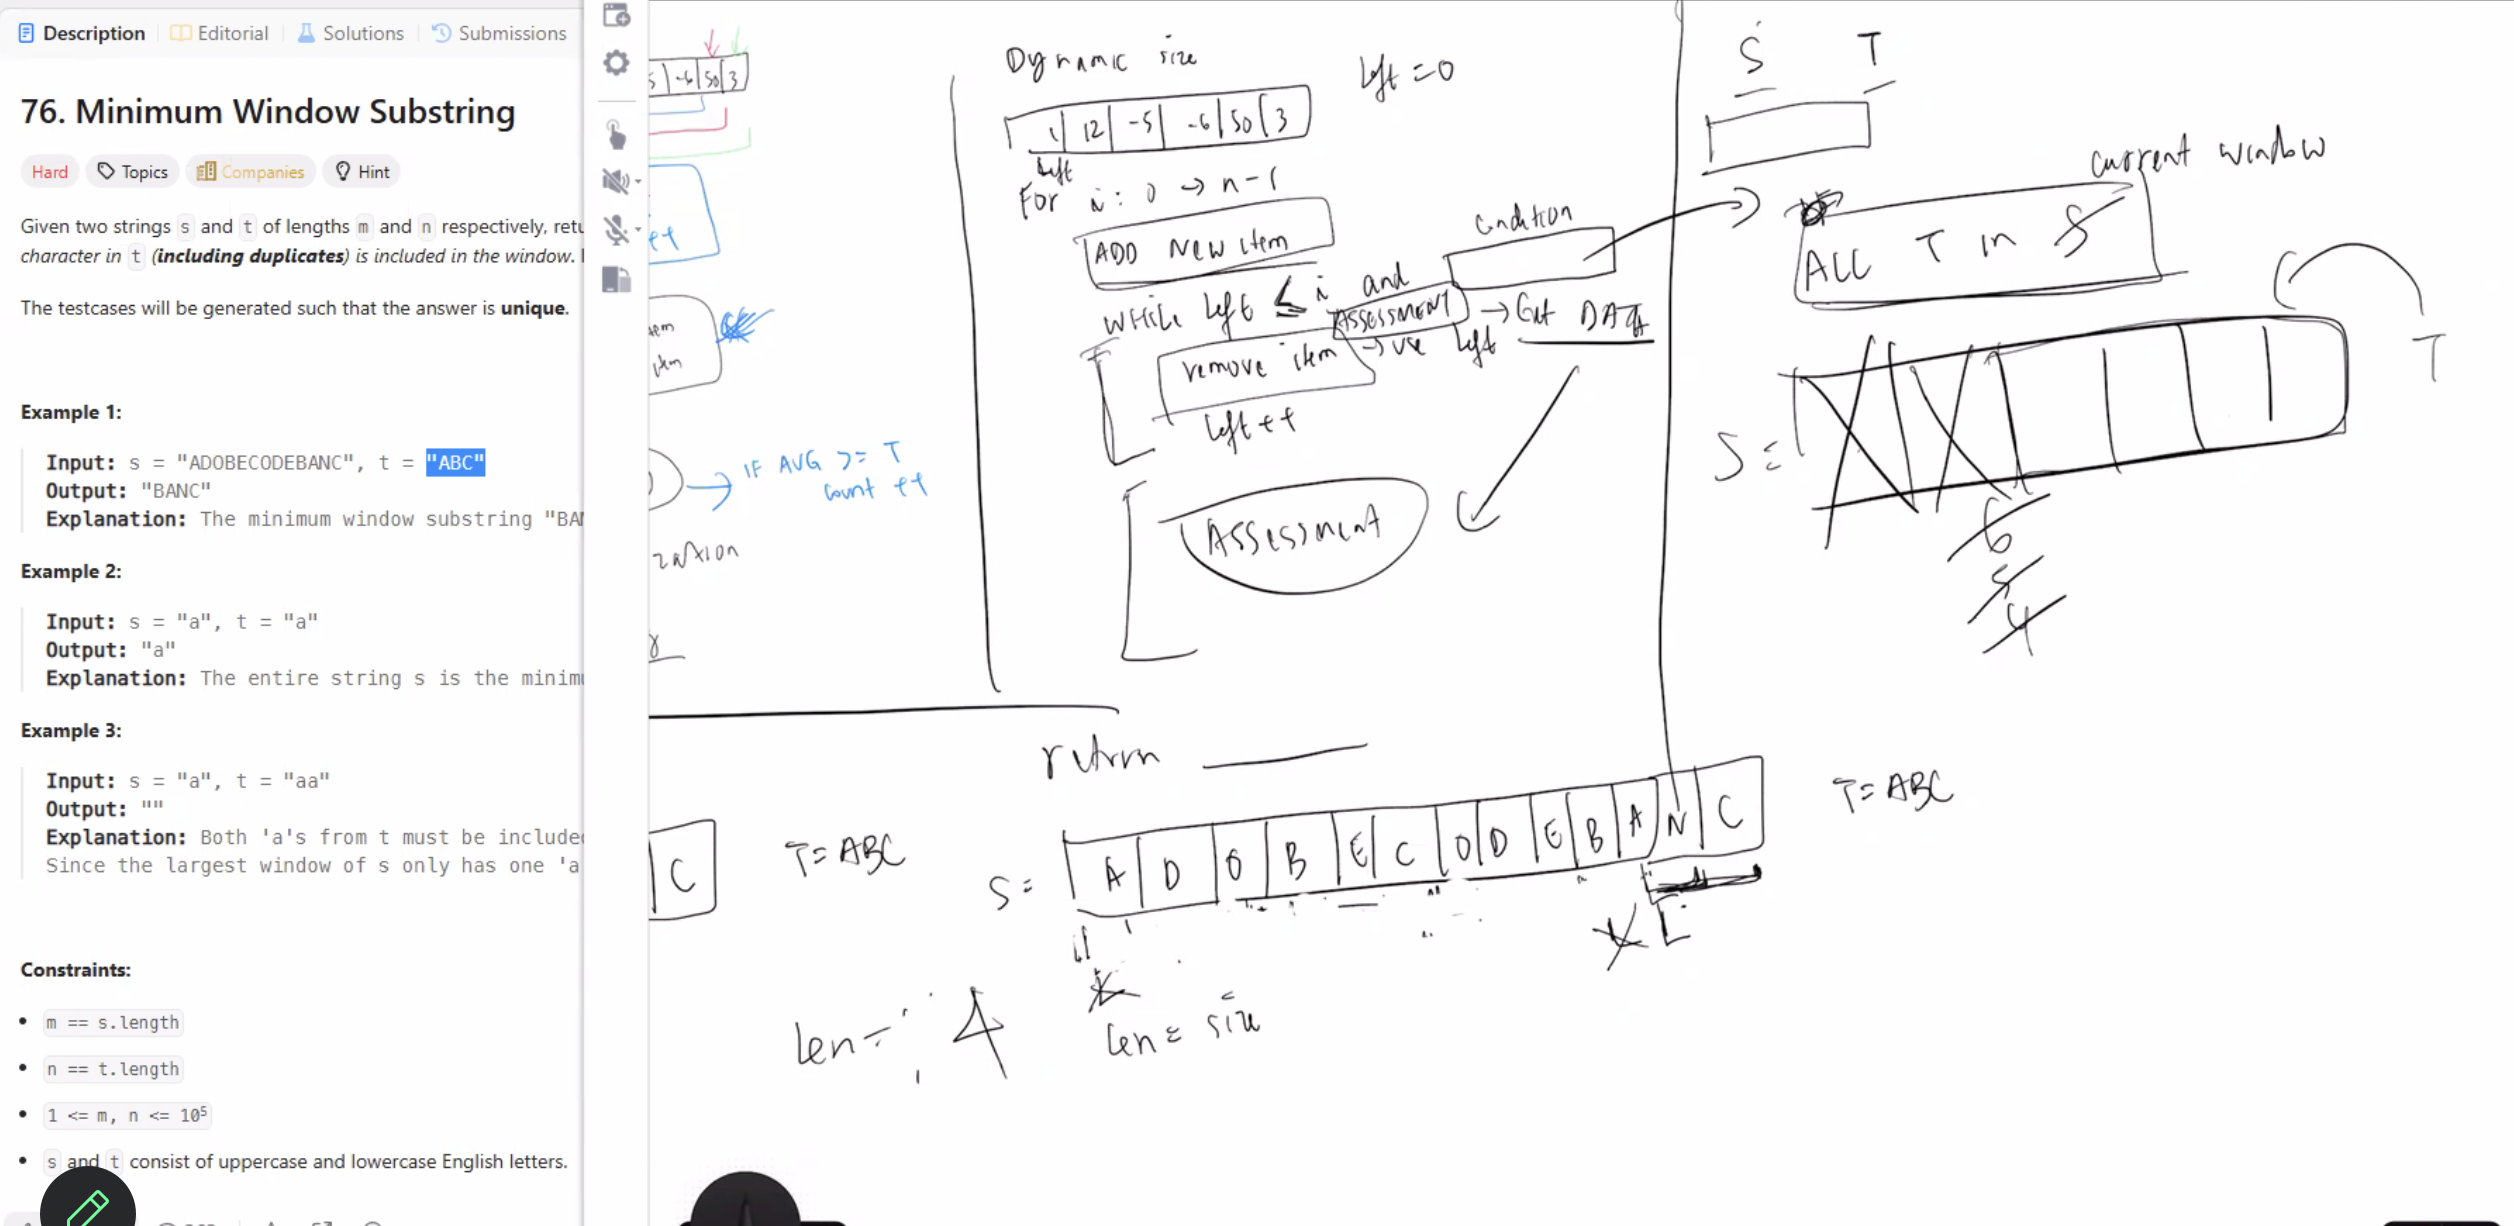 Description
Editorial
Solutions
Submissions
76. Minimum Window Substring
Hard
Topics
Companies
Hint
Given two strings s and t of lengths m and n respectively, retu
character in t (including duplicates) is included in the window.
The testcases will be generated such that the answer is unique.
Example 1:
Input: s = "ADOBECODEBANC", t = "ABC"
Output: "BANC"
Explanation: The minimum window substring "BAN
Example 2:
Input: s = "a", t = "a"
Output: "a"
Explanation: The entire string s is the minimu
Example 3:
Input: s = "a", t = "aa"
Output: ""
Explanation: Both 'a's from t must be included
Since the largest window of s only has one 'a
Constraints:
m == s.length
n == t.length
1 <= m, n <= 10⁵
s and t consist of uppercase and lowercase English letters.
5 -6 50 3
++
IF AVG >= T
count ++
zation
Dynamic size
left = 0
1 12 -5 -6 50 3
left
For i: 0 → n-1
ADD New item
condition
while left ≤ i and
ASSESSMENT → Get DATA
remove item → use left
left ++
Assessment
return
S T
current window
ALL T in S
T
S =
6
5
4
C
T = ABC
S = A D O B E C O D E B A N C
T = ABC
L
len = 4
len = size